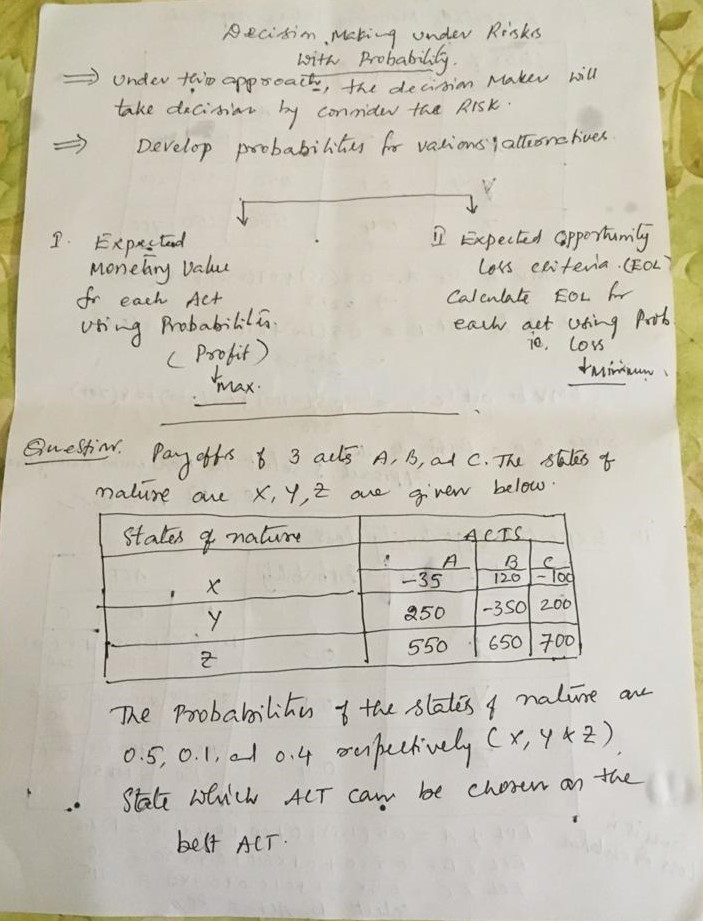 Decision Making under Risks
with Probability.
⇒ Under this approach, the decision Maker will
take decision by consider the RISK.
⇒ Develop probabilities for various alternatives.
I. Expected
Monetry Value
for each Act
using Probabilities.
(Profit)
↓
Max.
II Expected Opportunity
Loss criteria. (EOL)
Calculate EOL for
each act using Prob
ie, loss
↓ Minimum.
Question. Pay offs of 3 acts A, B, and C. The states of
nature are X, Y, Z are given below.
States of nature ACTS
A B C
X -35 120 -100
Y 250 -350 200
Z 550 650 700
The Probabilities of the states of nature are
0.5, 0.1, and 0.4 respectively (X, Y & Z)
State which ACT can be chosen as the
best ACT.